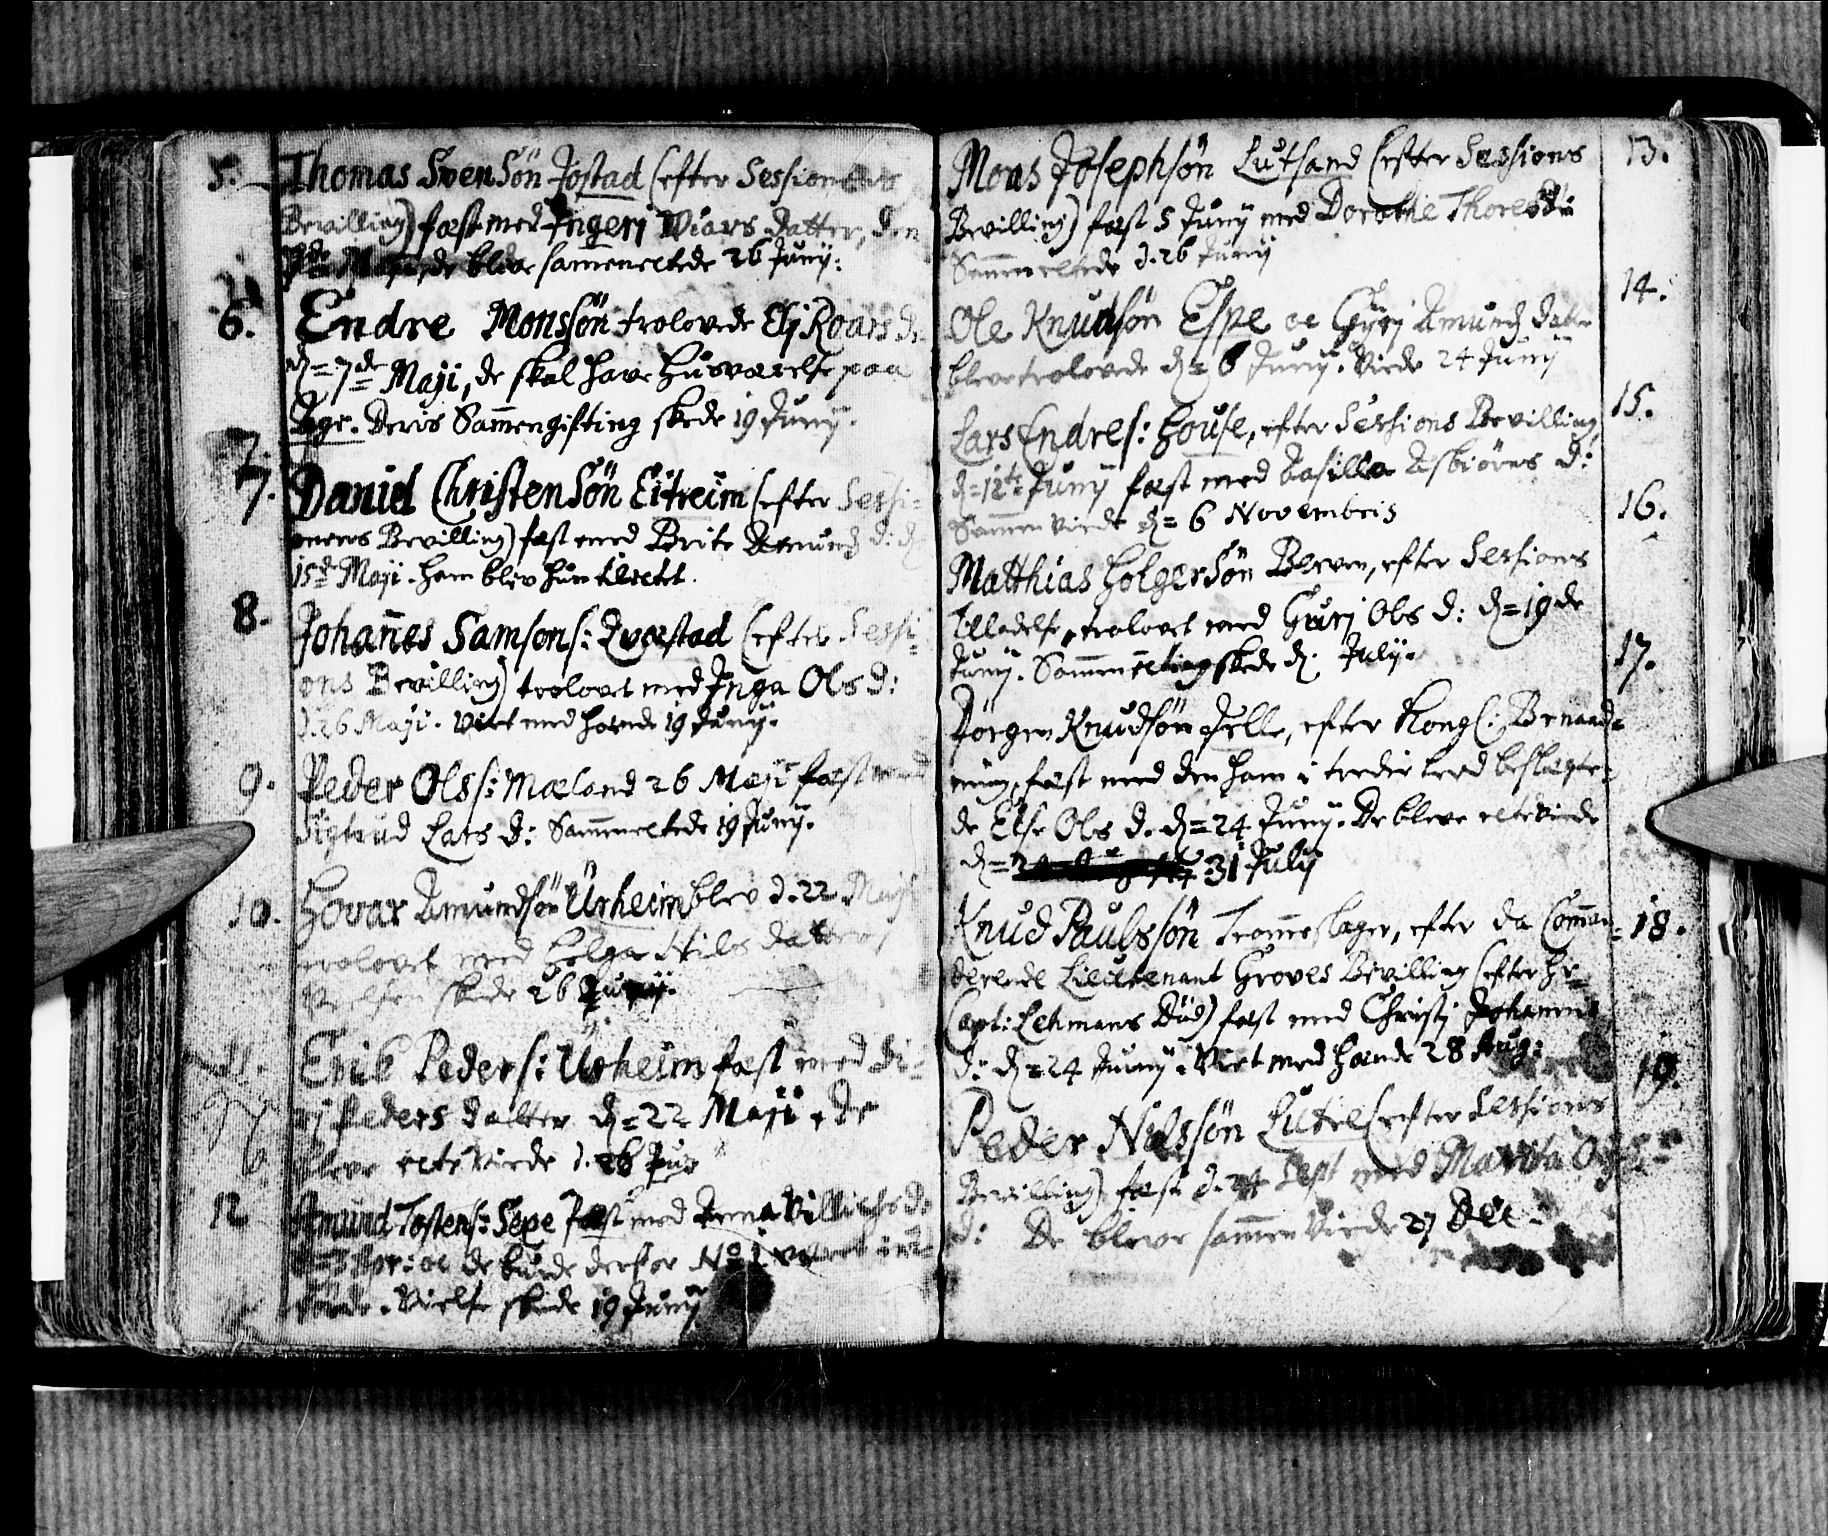 5. Thomas SvenSön Jostad (efter Sessionens
Bevilling) fæst med Ingerj Wiars Datter, den
Maji, de bleve sameneltede 26 Junij:
6. Endre Monssön trolovede Elj Roars D:
d = 7de Maji, de skal have Husværelse paa
Age. Deris Sam̅engifting skede 19 Junij.
7. Daniel ChristenSön Eitreim (efter Sessi-
onens Bevilling) fæst med Brite Amunds D: d
15de Maji. Ham blev hun
8. Johan̅es Samsons: Qvæstad (efter Sessi-
ons Bevilling) trolovet med Inga Ols D:
d. 26 Maji. Viet med hænde 19 Junij.
9. Peder Olss: Mæland 26 Maji fæst med
Sigtrud Lars D: Sam̅eneltede 19 Junij.
10. Hovar Amundsön Urheim blev d. 22 Maji
trolovet med Helga Nils Datter,
Vielsen skede 26 Junij.
11. Erik Peders: Urheim fæst med Si-
rj Peders Datter d = 22 Maji, De
bleve elteViede d. 26 Jun
12 Amund Tostens: Sexe fæst med Anna Villichs D:
d = 3 Apr: oc de burde derfor No 1 været ind-
förde. Vielse skede 19 Junij
Mons Josephsön Lutsand (efter Sessions 13.
Bevilling) fæst 5 Junij med Dorothe Thores D:
Sam̅eneltede d. 26 Junij
Ole Knudsön Espe oc Gyrj Amunds Datter 14.
bleve trolovede d = 6 Junij. Viede 24 Junij
Lars Endres: House, efter Sessions Bevilling 15.
d = 12te Junij fæst med Rasilla Asbiörns D:
Sam̅enViede d = 6 Novembris 16.
Matthias HolgerSön Bleven, efter Sessions
Tilladelse, trolovet med Gurj Ols D: d = 19de
Junij. Sam̅eneltning skede d. Julij. 17.
Jörgen Knudsön Jelle, efter Kongl: Benaad-
ning, fæst med den ham i tredie Leed beslægte-
de Else Ols D. d = 24 Junij. De bleve elteViede
d = 31 Julij
Knud Paulssön Trom̅eslager, efter da Com̅an- 18.
derende Lieutenant Groves Bevilling (efter Hr-
Capt: Lehmans Död) fæst med Christj Johannes
D: d = 24 Junij. Viet med hænde 28 Aug: 19.
Peder Nilssön Lutre (efter Sessions
Bevilling) fæst d. 24 Sept med Marita
D: De bleve sam̅enViede 27 Dec.